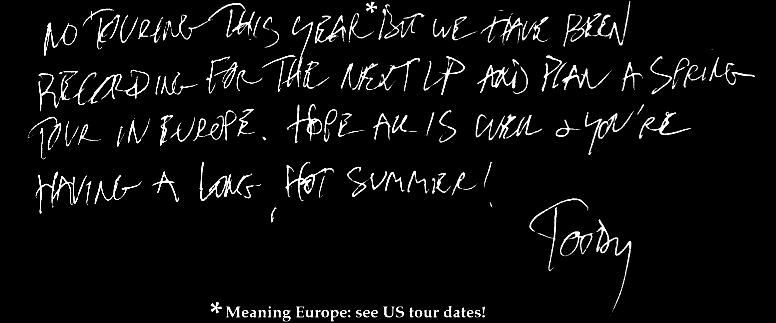 NO TOURING THIS YEAR* BUT WE HAVE BEEN
RECORDING FOR THE NEXT LP AND PLAN A SPRING
TOUR IN EUROPE. HOPE ALL IS WELL & YOU'RE
HAVING A LONG, HOT SUMMER!
TOODY
* Meaning Europe: see US tour dates!